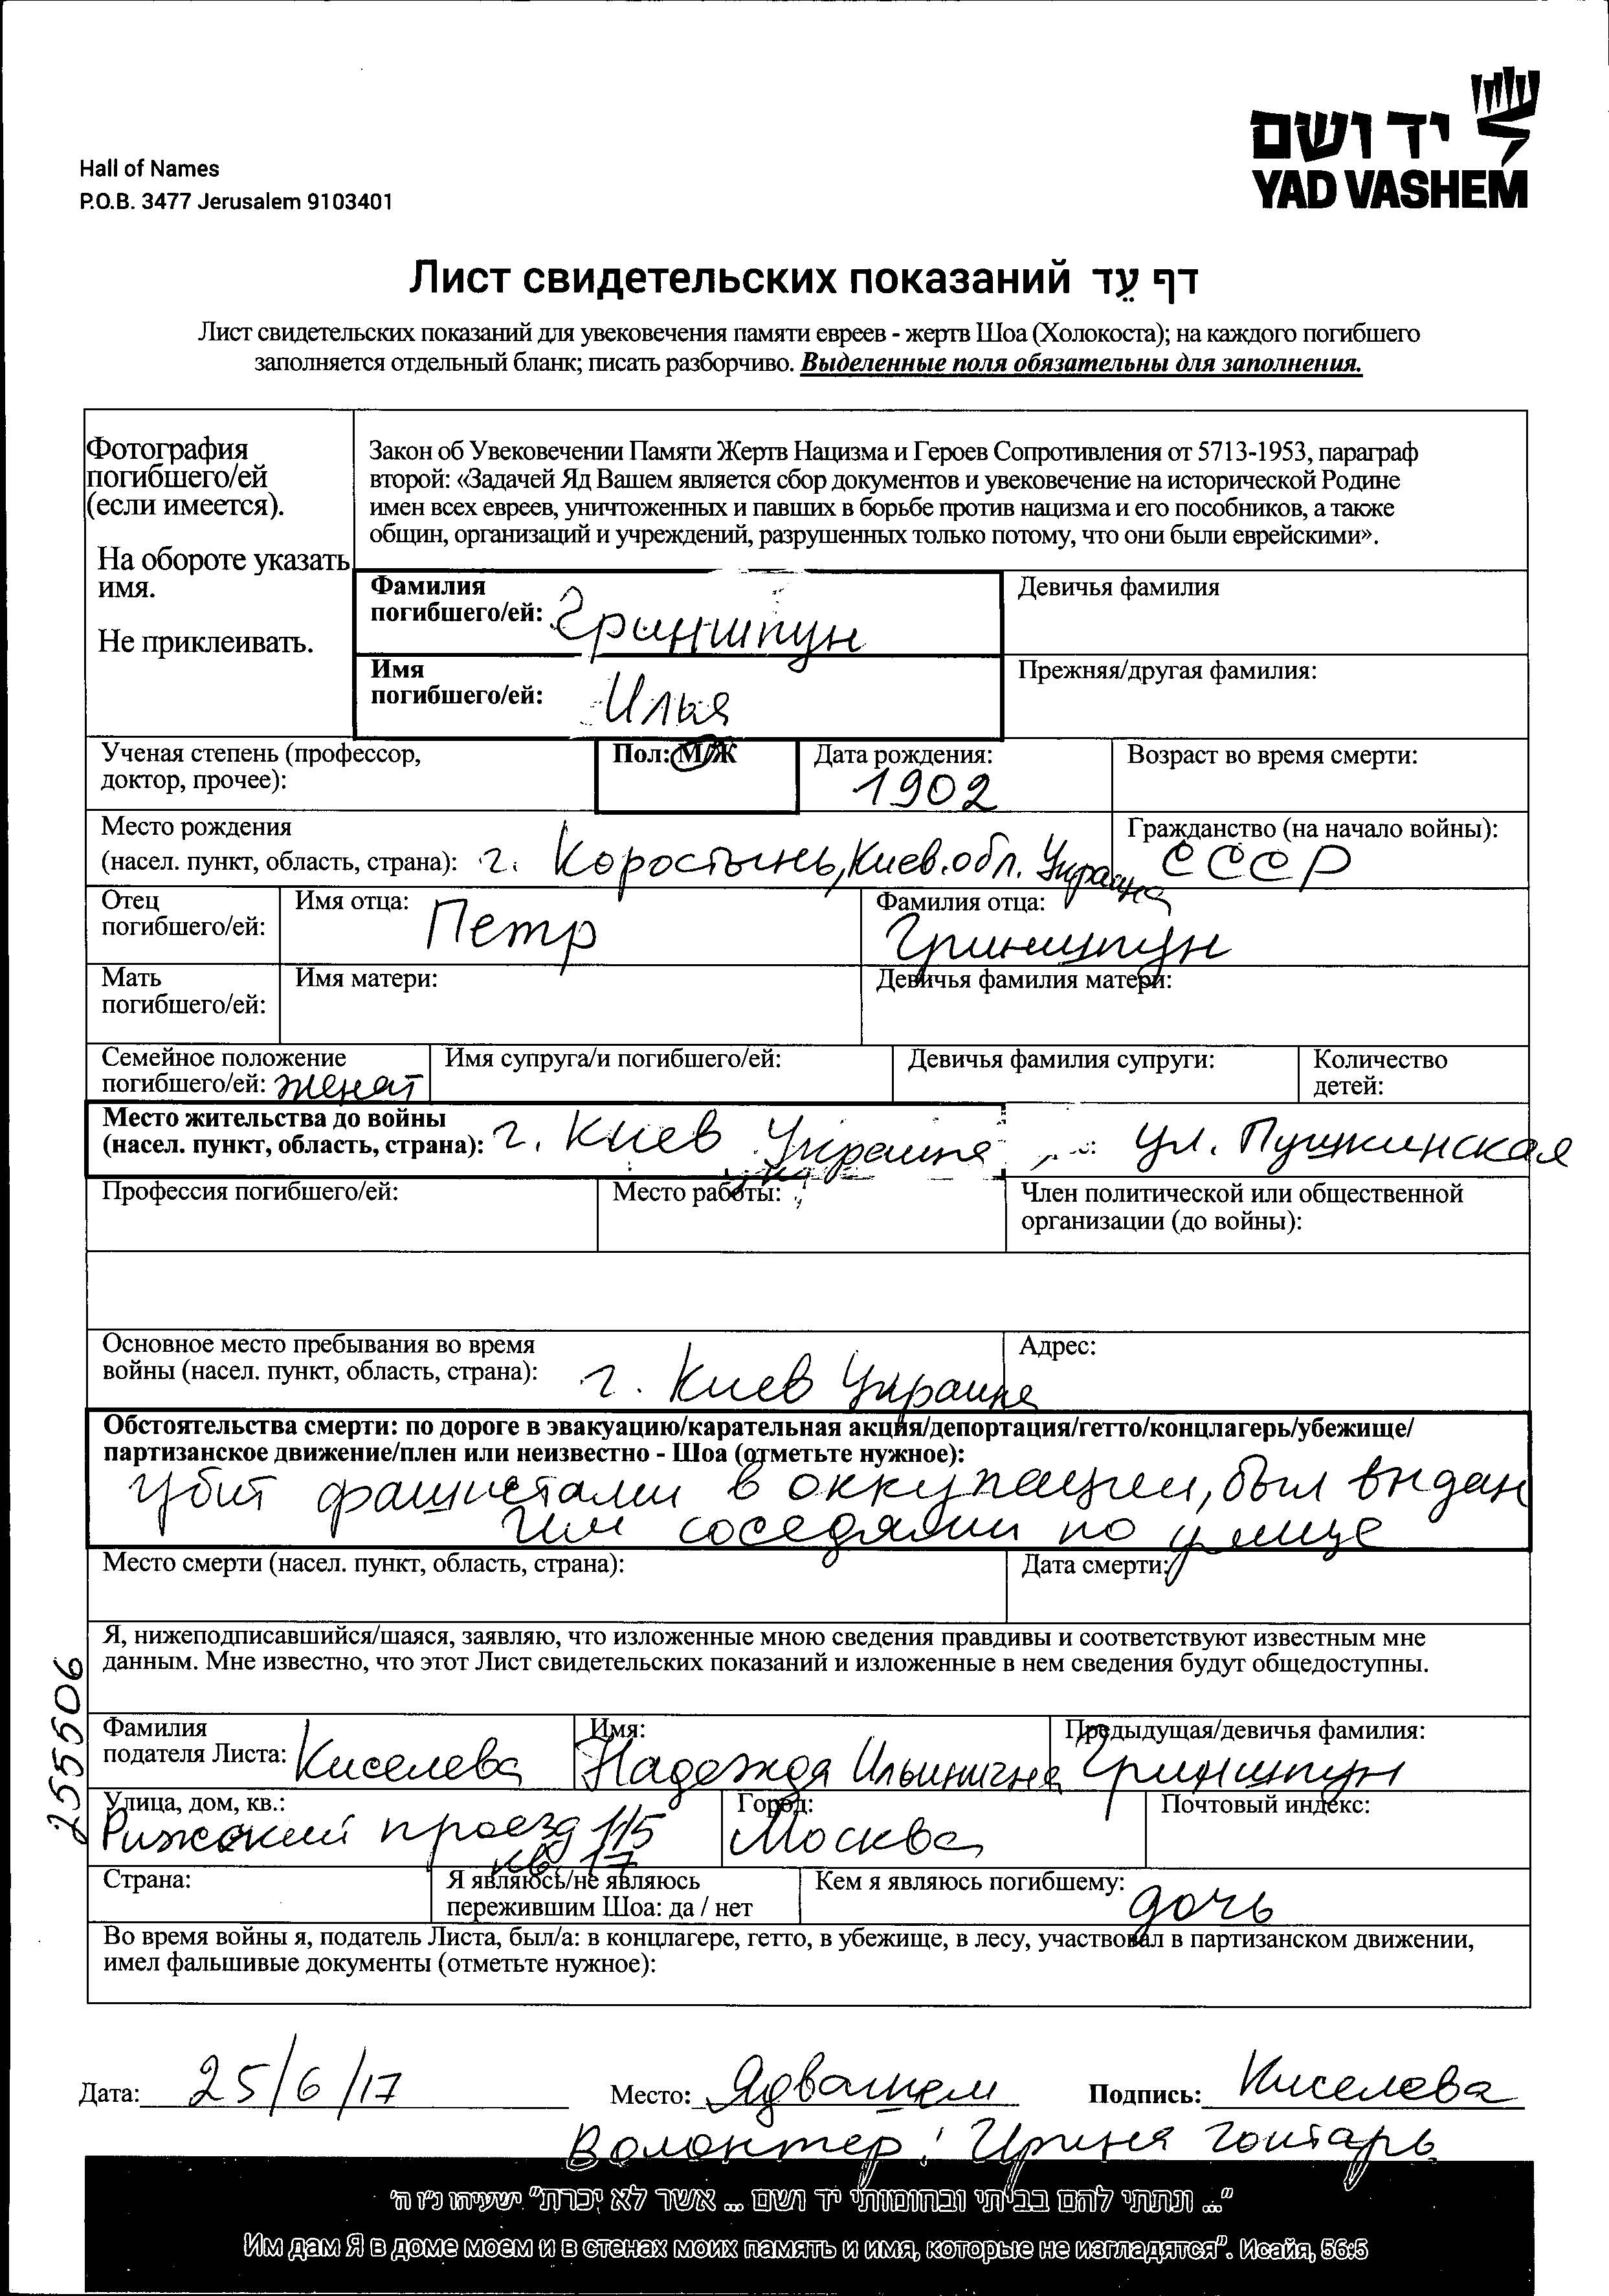 יד ושם
YAD VASHEM
Hall of Names
P.O.B. 3477 Jerusalem 9103401
Лист свидетельских показаний דף עֵד
Лист свидетельских показаний для увековечения памяти евреев - жертв Шоа (Холокоста); на каждого погибшего
заполняется отдельный бланк; писать разборчиво. Выделенные поля обязательны для заполнения.
Фотография
погибшего/ей
(если имеется).
На обороте указать
имя.
Не приклеивать.
Закон об Увековечении Памяти Жертв Нацизма и Героев Сопротивления от 5713-1953, параграф
второй: «Задачей Яд Вашем является сбор документов и увековечение на исторической Родине
имен всех евреев, уничтоженных и павших в борьбе против нацизма и его пособников, а также
общин, организаций и учреждений, разрушенных только потому, что они были еврейскими».
Фамилия
погибшего/ей: Гриншпун
Девичья фамилия
Имя
погибшего/ей: Илья
Прежняя/другая фамилия:
Ученая степень (профессор,
доктор, прочее):
Пол: М/Ж
Дата рождения:
1902
Возраст во время смерти:
Место рождения
(насел. пункт, область, страна): г. Коростынь, Киев. обл. Украина
Гражданство (на начало войны):
СССР
Отец
погибшего/ей:
Имя отца: Петр
Фамилия отца:
Гриншпун
Мать
погибшего/ей:
Имя матери:
Девичья фамилия матери:
Семейное положение
погибшего/ей: женат
Имя супруга/и погибшего/ей:
Девичья фамилия супруги:
Количество
детей:
Место жительства до войны
(насел. пункт, область, страна): г. Киев Украина
ул. Пушкинская
Профессия погибшего/ей:
Место работы:
Член политической или общественной
организации (до войны):
Основное место пребывания во время
войны (насел. пункт, область, страна): г. Киев Украина
Адрес:
Обстоятельства смерти: по дороге в эвакуацию/карательная акция/депортация/гетто/концлагерь/убежище/
партизанское движение/плен или неизвестно - Шоа (отметьте нужное):
убит фашистами в оккупации, был выдан
им соседями по улице
Место смерти (насел. пункт, область, страна):
Дата смерти:
Я, нижеподписавшийся/шаяся, заявляю, что изложенные мною сведения правдивы и соответствуют известным мне
данным. Мне известно, что этот Лист свидетельских показаний и изложенные в нем сведения будут общедоступны.
255506
Фамилия
подателя Листа: Киселева
Имя:
Надежда Ильинична
Предыдущая/девичья фамилия:
Гриншпун
Улица, дом, кв.:
Рижский проезд 115
кв 17
Город:
Москва
Почтовый индекс:
Страна:
Я являюсь/не являюсь
пережившим Шоа: да / нет
Кем я являюсь погибшему:
дочь
Во время войны я, податель Листа, был/а: в концлагере, гетто, в убежище, в лесу, участвовал в партизанском движении,
имел фальшивые документы (отметьте нужное):
Дата: 25/6/17
Место: Ядвашем
Подпись: Киселева
Волонтер: Ирина Гонтарь
"... ונתתי להם בביתי ובחומותי יד ושם ... אשר לא יכרת" ישעיהו נ"ו ה'
Им дам Я в доме моем и в стенах моих память и имя, которые не изгладятся". Исайя, 56:5